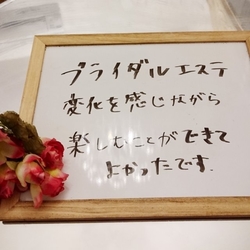 ブライダルエステ
変化を感じながら
楽しむことができて
よかったです.